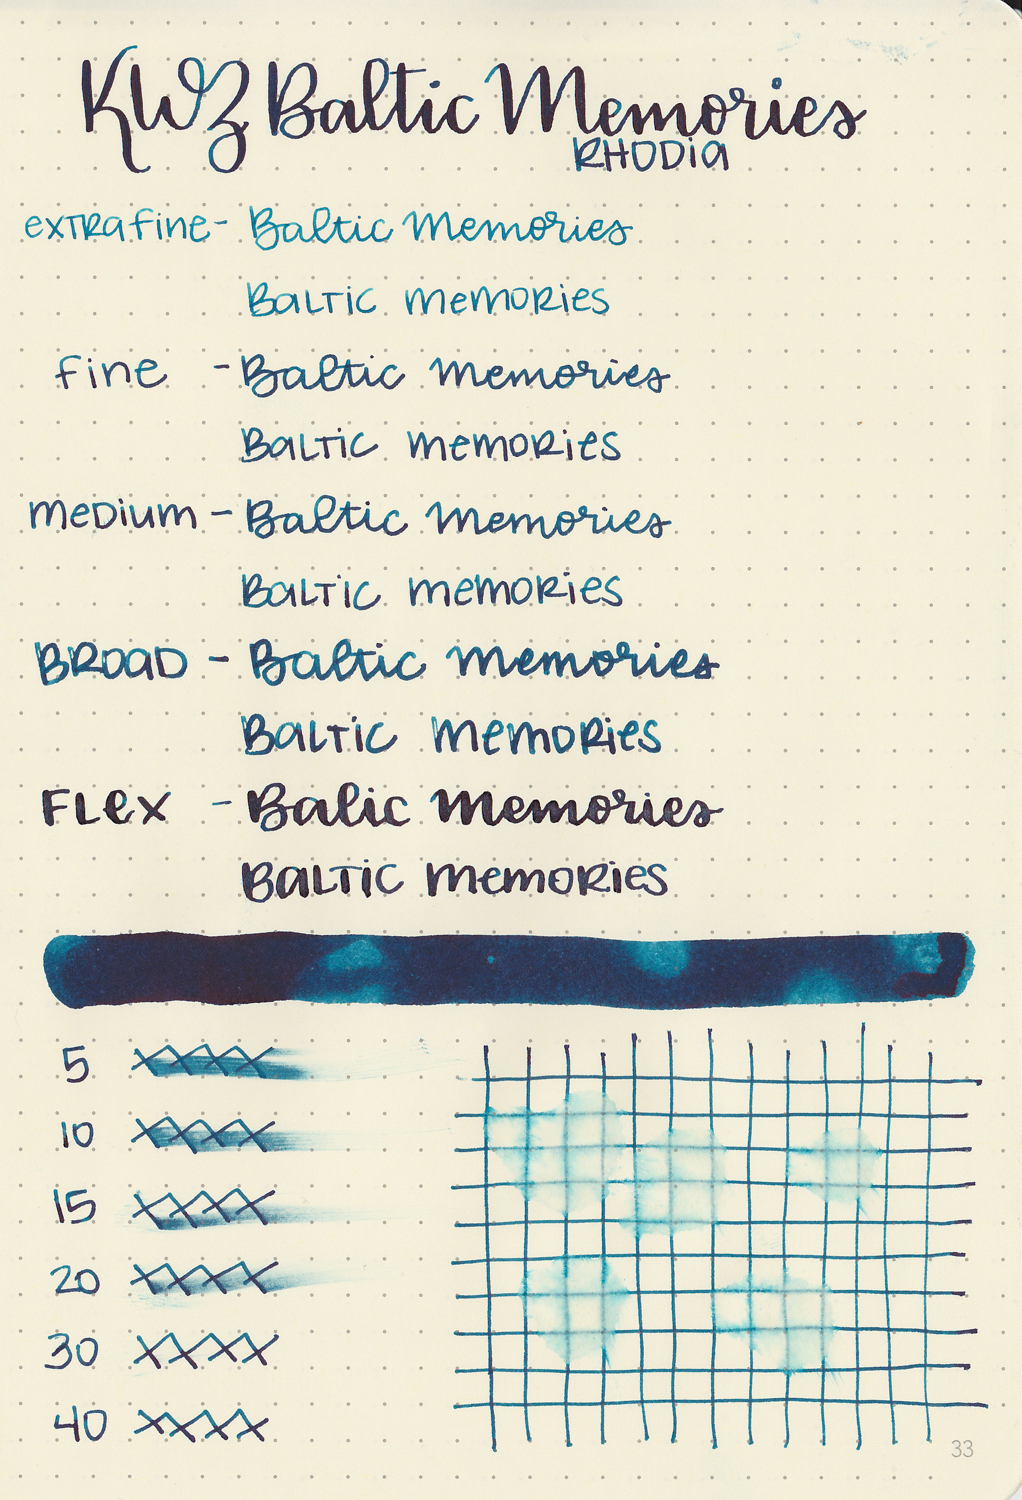 KWZ Baltic Memories
RHODIA
extrafine - Baltic Memories
Baltic memories
fine - Baltic Memories
Baltic memories
medium - Baltic Memories
Baltic memories
BROAD - Baltic Memories
Baltic memories
FLex - Balic Memories
Baltic memories
5 XXXX
10 XXXX
15 XXXX
20 XXXX
30 XXXX
40 XXXX
33